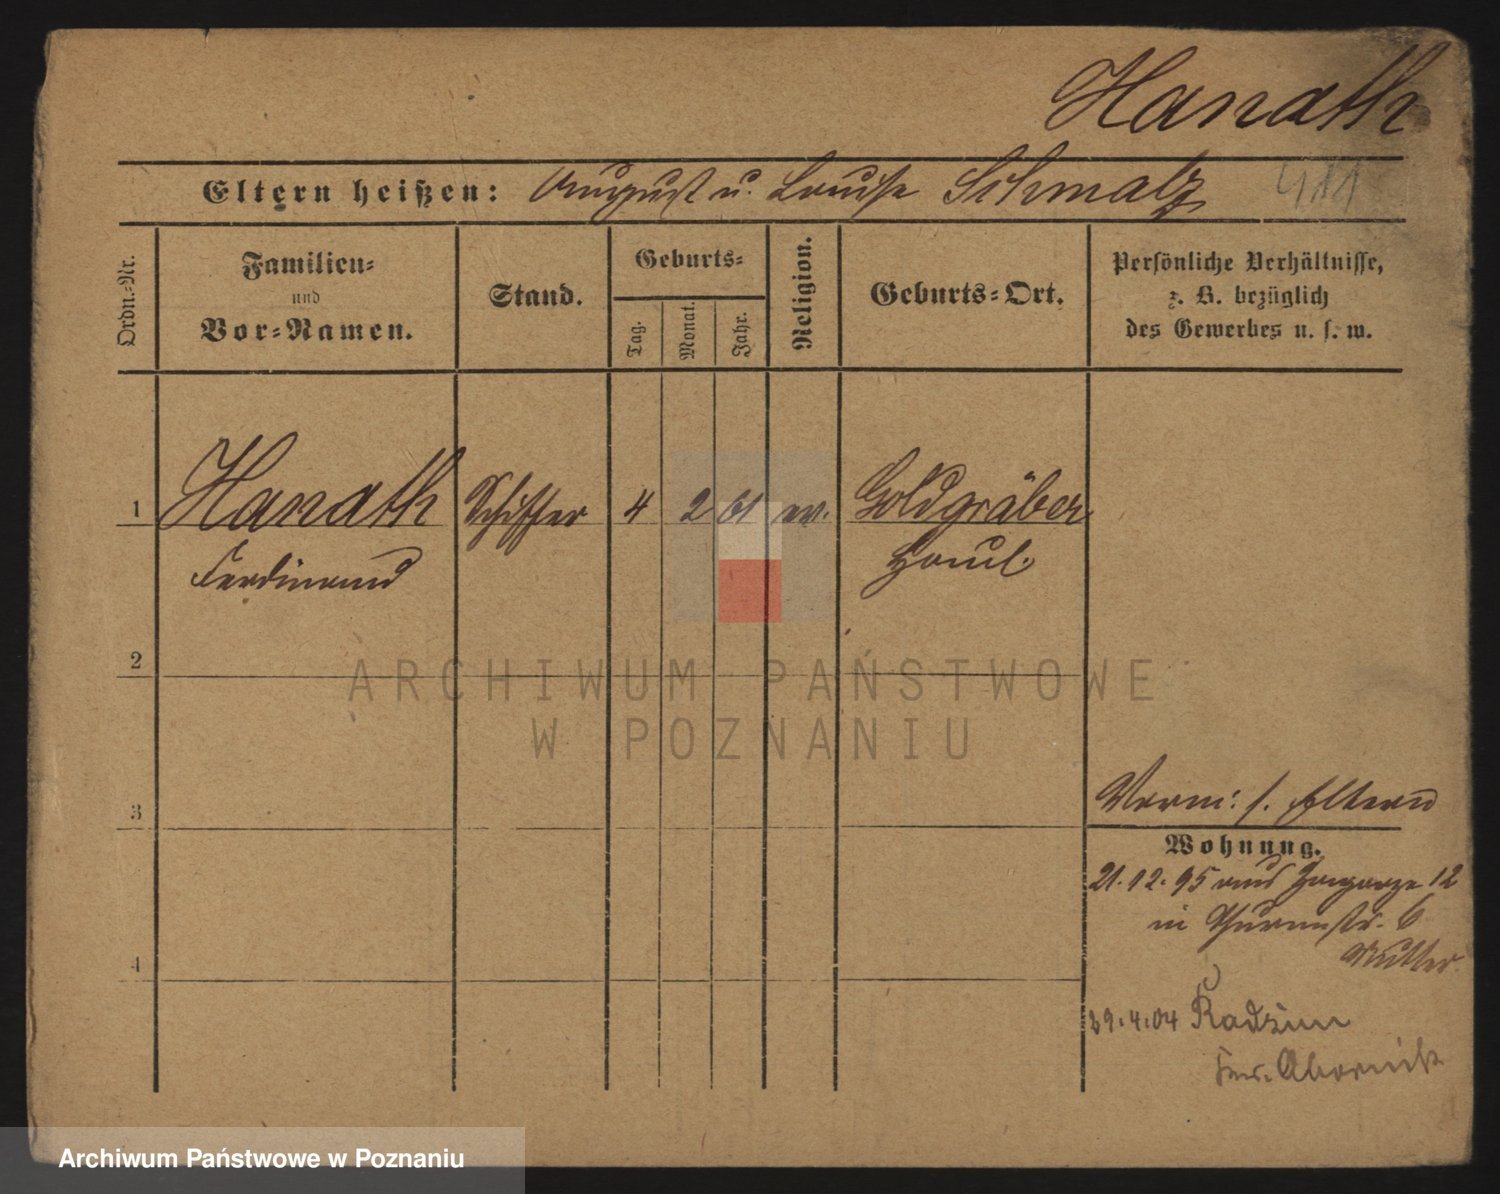 Hanath
Eltern heißen: August u. Louise Schmalz
411
Ordn.-Nr.
Familien-
und
Vor-Namen.
Stand.
Geburts-
Tag.
Monat.
Jahr.
Religion.
Geburts-Ort.
Persönliche Verhältnisse,
z. B. bezüglich
des Gewerbes u. s. w.
1 Hanath Schiffer 4 2 61 ev. Goldgräber
Ferdinand Haul.
2
ARCHIWUM PAŃSTWOWE
W POZNANIU
3
Verm: s. Eltern
Wohnung.
21.12.95 aus Zagorze 12
in Thurmstr. 6
Mutter
4
29.4.04 Radzim
Obornik
Archiwum Państwowe w Poznaniu